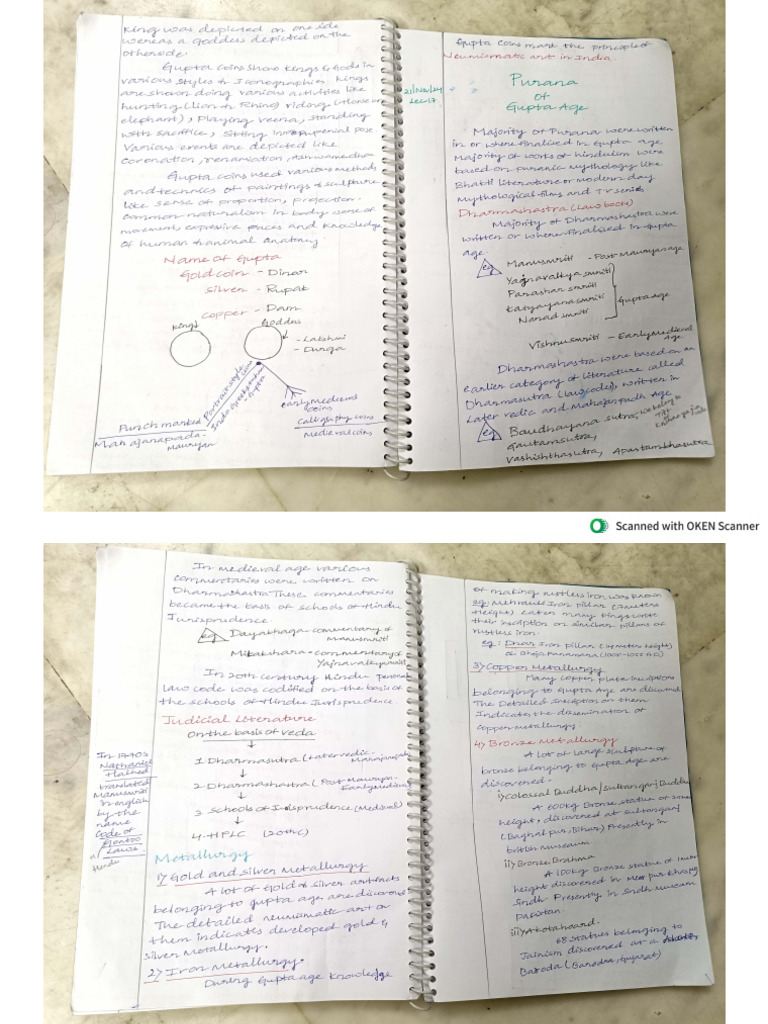 King was depicted on one side
wereas a Goddess depicted on the
otherside.
Gupta coins show kings & Gods in
various styles & Iconographies kings
are shown doing various activities like
hunting (Lion & Rhino) riding (Horse or
elephant), Playing veena, standing
with sacrifice, sitting in pose
Various events are depicted like
Coronation,
Gupta coins used various methods
and technics of paintings & sculpture
like sense of proportion, projection.
Common naturalism in body sense of
movement, expressive faces and knowledge
of human & animal anatomy.
Name of Gupta
Gold coin - Dinar
Silver - Rupak
copper - Dam
King
Goddess
- Lakshmi
- Durga
Portrait style coin
Indo Greek
Gupta
early medieval
coins
Calligraphy coins
Medieval coins
Punch marked
Mahajanapada-
Mauryan
Gupta coins mark the principle of
Neumismatic art in India
21/Nov/24
Lec 17
Purana
of
Gupta Age
Majority of Purana were written
in or where finalised in Gupta age
Majority of works of hinduism were
based on puranic mythology like
Bhakti literature or modern day
Mythological films and T.v series
Dharmashastra (Law books)
Majority of Dharmashastra were
written or where finalised in Gupta
age.
eg
Manusmriti - Post-Mauryan age
Yajnavalkya smriti
Parashar smriti
Katyayana smriti
Narad smriti
Gupta Age
Vishnu smriti - Early medieval
Age
Dharmashastra were based on an
earlier category of literature called
Dharmasutra (Law codes), written in
Later vedic and Mahajanpada Age
eg
Baudhayana sutra,
Gautamsutra,
Vashishthasutra, Apastambhasutra
Scanned with OKEN Scanner
In medieval age various
commentaries were written on
Dharmashastra These commentaries
became the basis of schools of Hindu
Jurisprudence.
eg
Dayabhaga - commentary of
Manusmriti
Mitakshara - commentary of
Yajnavalkyasmriti
In 20th century Hindu personal
law code was codified on the basis of
the schools of Hindu Jurisprudence.
Judicial Literature
On the basis of veda
1 Dharmasutra (Later vedic -
Mahajanpada)
2 Dharmashastra (Post Mauryan-
Early Medieval)
3 Schools of Jurisprudence (Medieval)
4- HPLC (20th C)
In 1770s
Nathaniel
Halhed
translated
Manusmriti
in english
by the
name
Code of
Gentoo
Laws
Hindu
Metallurgy
1) Gold and silver Metallurgy
A lot of Gold & silver artifacts
belonging to gupta age are discovered
The detailed neumismatic art on
them indicates developed gold &
silver Metallurgy.
2) Iron Metallurgy.
During Gupta age knowledge
of making rustless iron was known
eg: Mehrauli Iron pillar (7 meters
Height) Later many kings wrote
their inscription on similar pillars of
rustless iron.
eg: Dhar Iron pillar
of Bhoja Paramara
3) Copper Metallurgy
Many copper plate inscriptions
belonging to Gupta Age are discovered
The Detailed inscription on them
Indicates the dissemination of
copper metallurgy.
4) Bronze Metallurgy
A lot of large sculpture of
bronze belonging to Gupta Age are
discovered.
i) Colossal Buddha / Sultanganj Buddha
A 600kg Bronze statue of
height, discovered at sultanganj
(Baghalpur, Bihar) Presently in
british museum.
ii) Bronze Brahma
A 100kg Bronze statue of
height discovered in Meerpur Khas,
Sindh Presently in Sindh museum
Pakistan.
iii) Akotahoard.
68 Statues belonging to
Jainism discovered at a
Baroda (Gujarat)